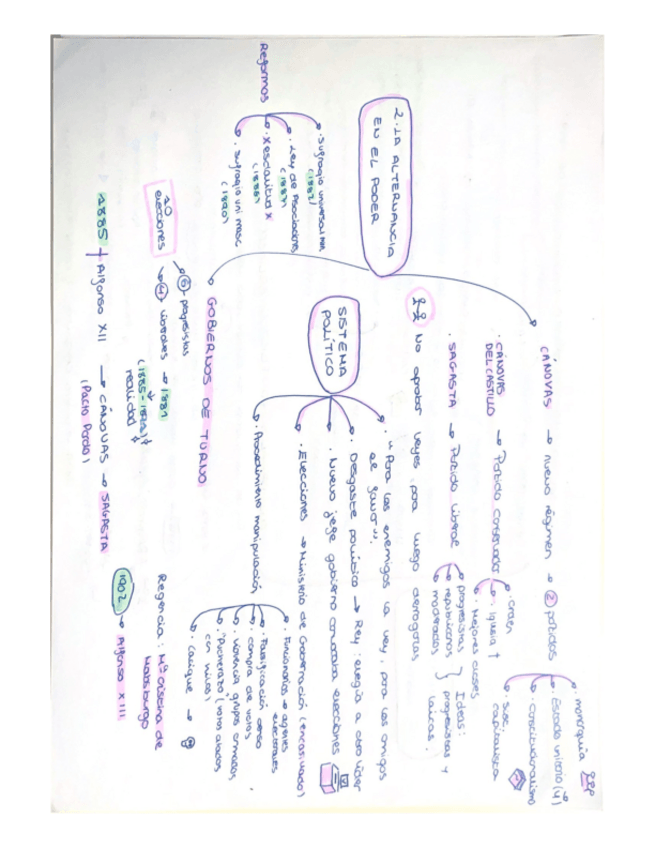 2. LA ALTERNANCIA
EN EL PODER
CÁNOVAS → nuevo régimen → 2 partidos
monarquía
Estado unitario (4)
constitucionalismo
soc. capitalista
. CÁNOVAS DEL CASTILLO → Partido conservador
orden
Iglesia ↑
Mejores clases
. SAGASTA → Partido liberal
progresistas
republicanos
moderados
Ideas:
progresistas y
laicas.
No aprobar leyes para luego derogarlas
SISTEMA
POLÍTICO
. "Para los enemigos la ley, para los amigos
el favor".
. Desgaste político → Rey: elegía a otro líder
. Nuevo jefe gobierno convocaba elecciones
. Elecciones → Ministerio de Gobernación (encasillado)
. Procedimiento manipulación
. Funcionarios → agentes
electorales
. Falsificación censo
. compra de votos
. violencia grupos armados
. "Pucherazo" (votos
. Cacique →
GOBIERNOS DE TURNO
Reformas
. Sufragio universal
. Ley de Asociaciones
(1887)
. X esclavitud X
. sufragio uni masc
(1890)
10
elecciones
6 progresistas
4 liberales → 1881
(1885-
realidad
1885 † Alfonso XII → CÁNOVAS → SAGASTA
(Pacto Pardo)
Regencia: Mª Cristina de
Habsburgo
1902 → Alfonso XIII